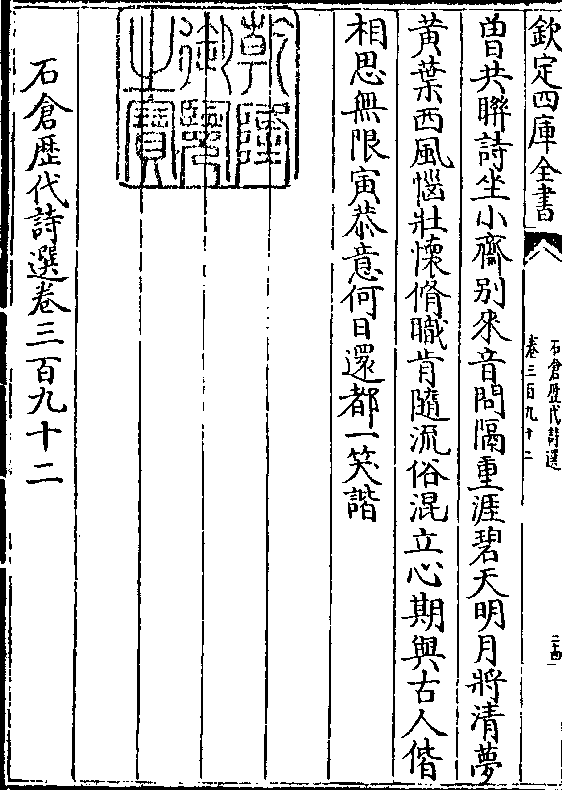 欽定四庫全書
石倉歴代詩選
卷三百九十二
二十四
曽共聯詩坐小齋别來音問隔重涯碧天明月將清夢
黄葉西風惱壯懷脩職肯隨流俗混立心期與古人偕
相思無限寅恭意何日還都一笑諧
乾隆御覽之寳
石倉歴代詩選卷三百九十二